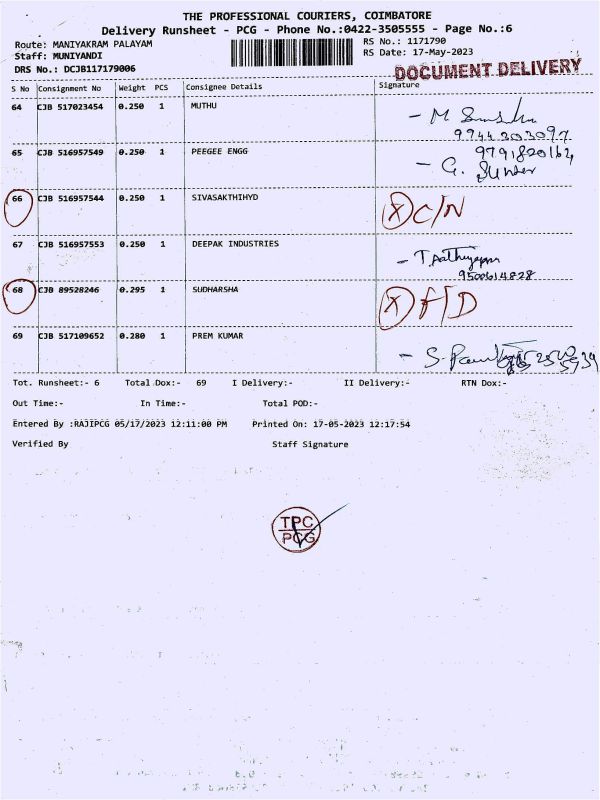 THE PROFESSIONAL COURIERS, COIMBATORE
Delivery Runsheet - PCG - Phone No.:0422-3505555 - Page No.:6
Route: MANIYAKRAM PALAYAM
RS No.: 1171790
Staff: MUNIYANDI
RS Date: 17-May-2023
DRS No.: DCJB117179006
DOCUMENT DELIVERY
S No Consignment No Weight PCS Consignee Details Signature
64 CJB 517023454 0.250 1 MUTHU
9744303097
65 CJB 516957549 0.250 1 PEEGEE ENGG
G.
66 CJB 516957544 0.250 1 SIVASAKTHIHYD X C/N
67 CJB 516957553 0.250 1 DEEPAK INDUSTRIES
9500614828
68 CJB 89528246 0.295 1 SUDHARSHA X
69 CJB 517109652 0.280 1 PREM KUMAR
Tot. Runsheet:- 6 Total Dox:- 69 I Delivery:- II Delivery:- RTN Dox:-
Out Time:- In Time:- Total POD:-
Entered By :RAJIPCG 05/17/2023 12:11:00 PM Printed On: 17-05-2023 12:17:54
Verified By Staff Signature
TPC
PCG